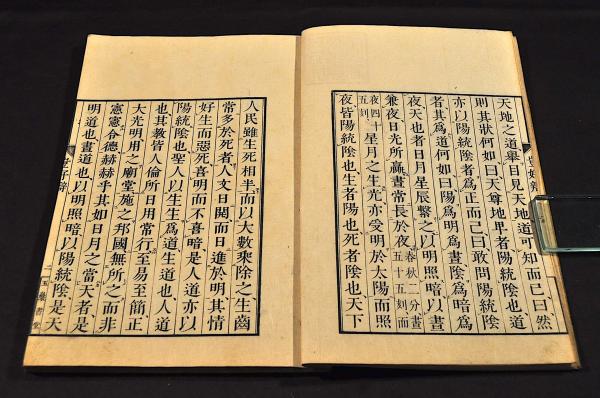 天地之道舉目見天地道可知而已曰然
則其狀何如曰天尊地卑者陽統陰也道
亦以陽統陰者爲正而已曰敢問陽統陰
者其爲道何如曰陽爲明爲晝陰爲暗爲
夜天也者日月星辰繫之以明照暗以晝
兼夜日光所贏晝常長於夜春秋二分晝五十五刻而
夜四十五刻星月之生光亦受明於太陽而照
夜皆陽統陰也生者陽也死者陰也天下
人民雖生死相半而以大數乘除之生齒
常多於死者人文日闢而日進於明其情
好生而惡死喜明而不喜暗是人道亦以
陽統陰也聖人以生生爲道生道也人道
也其教皆人倫所日用常行至易至簡正
大光明用之廟堂施之邦國無所之而非
憲憲令德赫赫乎其如日月之當天者是
明道也晝道也以明照暗以陽統陰是天